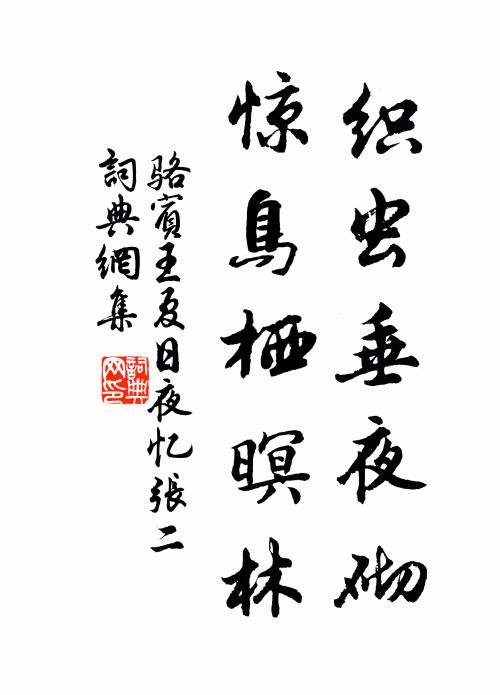 织虫垂夜砌
惊鸟栖暝林
骆賓王夏日夜忆張二
詞典網集
詞典网印